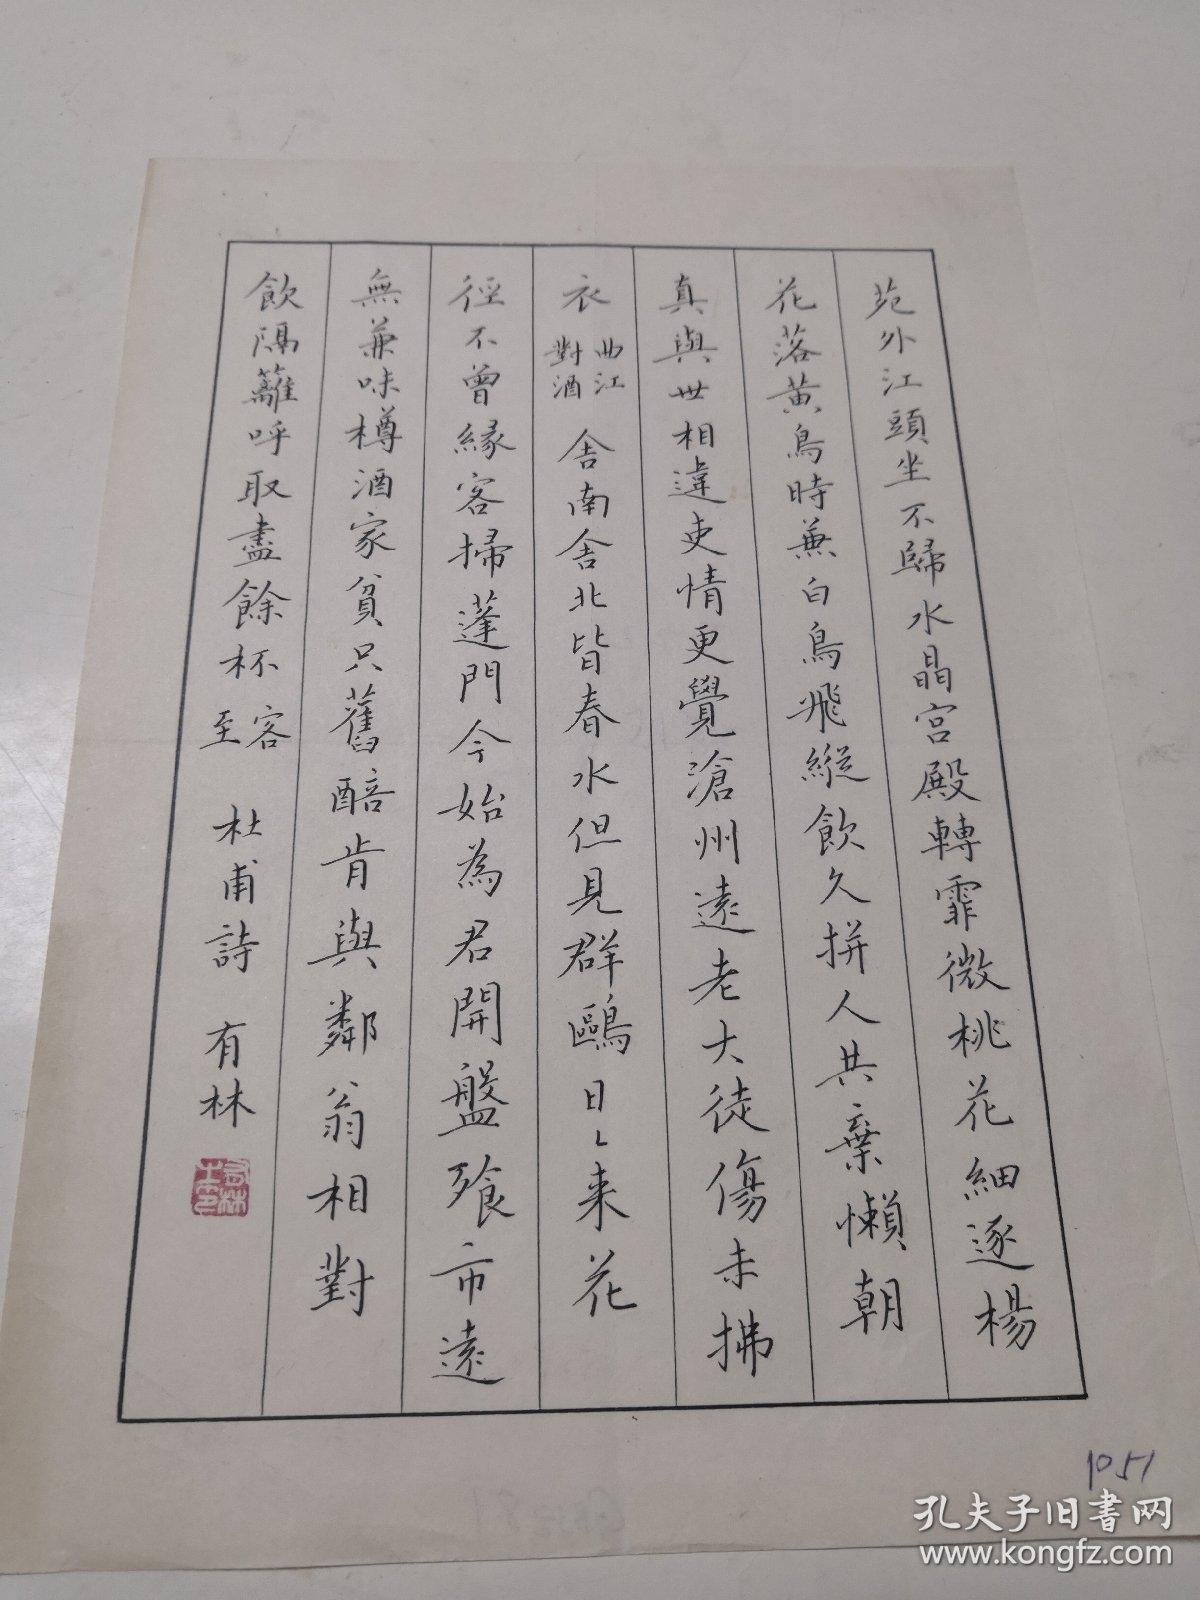 苑外江頭坐不歸水晶宮殿轉霏微桃花細逐楊
花落黃鳥時兼白鳥飛縱飲久拼人共棄懶朝
真與世相違吏情更覺滄州遠老大徒傷未拂
衣曲江對酒舍南舍北皆春水但見群鷗日〻来花
徑不曾緣客掃蓬門今始為君開盤飱市遠
無兼味樽酒家貧只舊醅肯與鄰翁相對
飲隔籬呼取盡餘杯客至 杜甫詩 有林
1051
孔夫子旧書网
www.kongfz.com